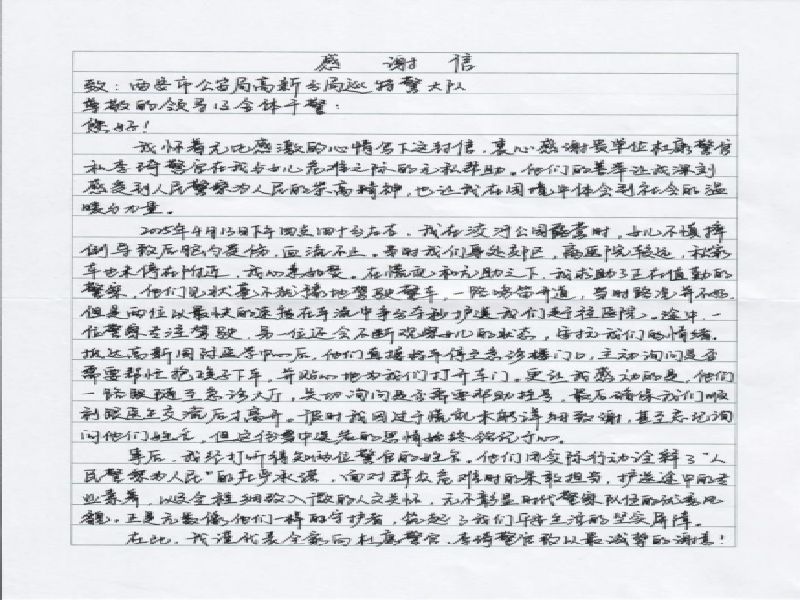 感谢信
致：西安市公安局高新分局巡特警大队
尊敬的领导及全体干警：
您好！
我怀着无比感激的心情写下这封信，衷心感谢贵单位杜 警官
和李琦警官在我与女儿危难之际的无私帮助。他们的善举让我深刻
感受到人民警察为人民的崇高精神，也让我在困境中体会到社会的温
暖与力量。
2025年4月13日下午四点四十分左右，我在 河公园露营时，女儿不慎摔
倒导致后脑勺受伤，血流不止。当时我们身处郊区，离医院较远，私家
车也未停在附近，我心急如焚。在慌乱和无助之下，我求助了正在值勤的
警察，他们见状毫不犹豫地驾驶警车，一路鸣笛开道，当时路况并不好，
但是两位以最快的速度在车流中争分夺秒护送我们进往医院。途中，一
位警察专注驾驶，另一位还会不断观察女儿的状态，安抚我们的情绪。
抵达高新国际医学中心后，他们直接将车停至急诊楼门口，主动询问是否
需要帮忙抱孩子下车，并贴心地为我们打开车门。更让我感动的是，他们
一路跟随至急诊大厅，关切询问是否需要帮助挂号，最后确保我们顺
利跟医生交流后才离开。彼时我因过于慌乱未能详细致谢，甚至忘记询
问他们姓名，但这份雪中送炭的恩情始终铭记于心。
事后，我经打听得知两位警官的姓名。他们用实际行动诠释了“人
民警察为人民”的庄严承诺，面对群众危难时的果敢担当，护送途中的专
业素养，以及全程细致入微的人文关怀，无不彰显时代警察队伍的优秀风
貌。正是无数像他们一样的守护者，筑起了我们平安生活的坚实屏障。
在此，我谨代表全家向杜 警官、李琦警官致以最诚挚的谢意！